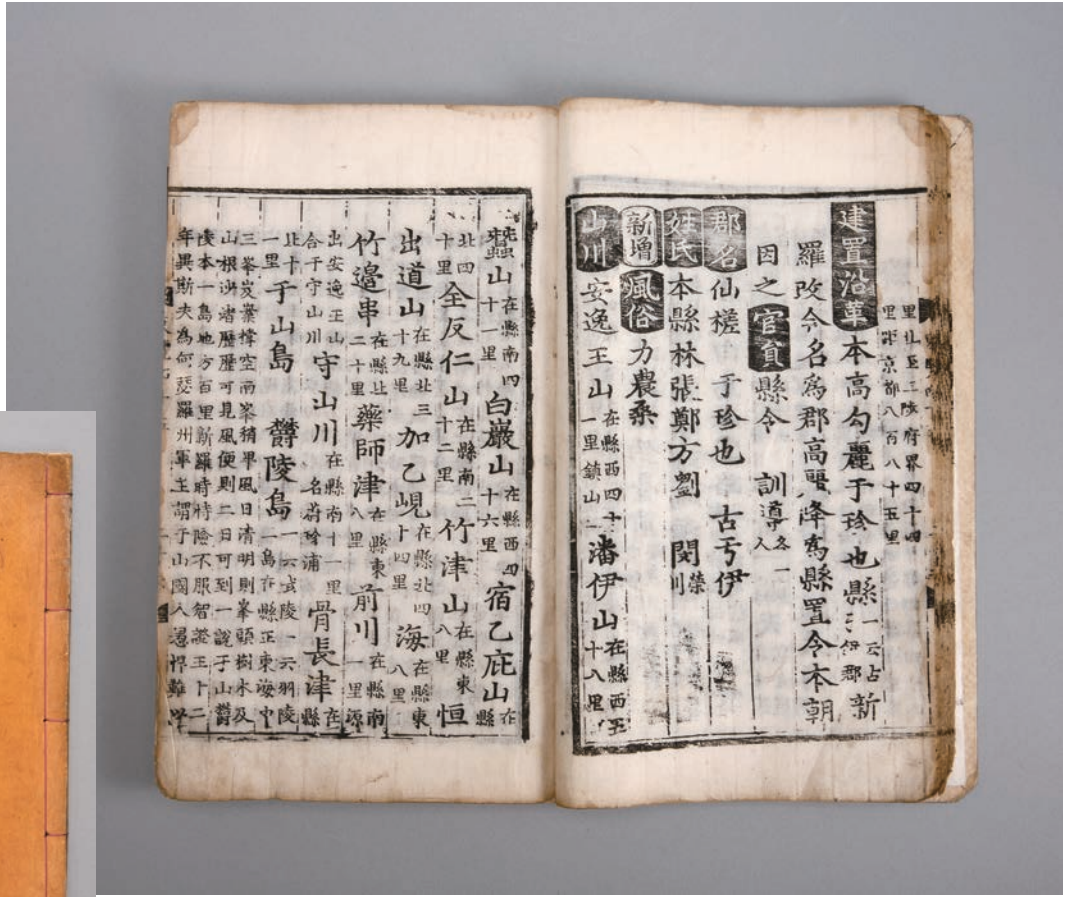 里北至三陟府界四十四
里距京都八百八十五里
建置沿革本高勾麗于珍也縣一云古亐伊郡新
羅改今名爲郡高麗降爲縣置令本朝
因之官員縣令 訓導各一人
郡名仙槎 于珍也 古亐伊
姓氏本縣林張鄭方劉 閔榮川
新增風俗力農桑
山川安逸王山在縣西四十一里鎭山潘伊山在縣西五十八里
蠶山在縣南四十一里白巖山在縣西四十六里宿乙庇山在縣
北四十里全反仁山在縣南二十二里竹津山在縣東八里恒
出道山在縣北三十九里加乙峴在縣北四十四里海在縣東八里
竹邊串在縣北二十里藥師津在縣東八里前川在縣南一里源
出安逸王山合于守山川守山川在縣南十一里名蔚珍浦骨長津在縣
北十一里于山島 鬱陵島一云武陵一云羽陵二島在縣正東海中
三峯岌嶪撑空南峯稍卑風日清明則峯頭樹木及
山根沙渚歷歷可見風便則二日可到一說于山鬱
陵本一島地方百里新羅時恃險不服智證王十二
年異斯夫爲何瑟羅州軍主謂于山國人愚悍難以